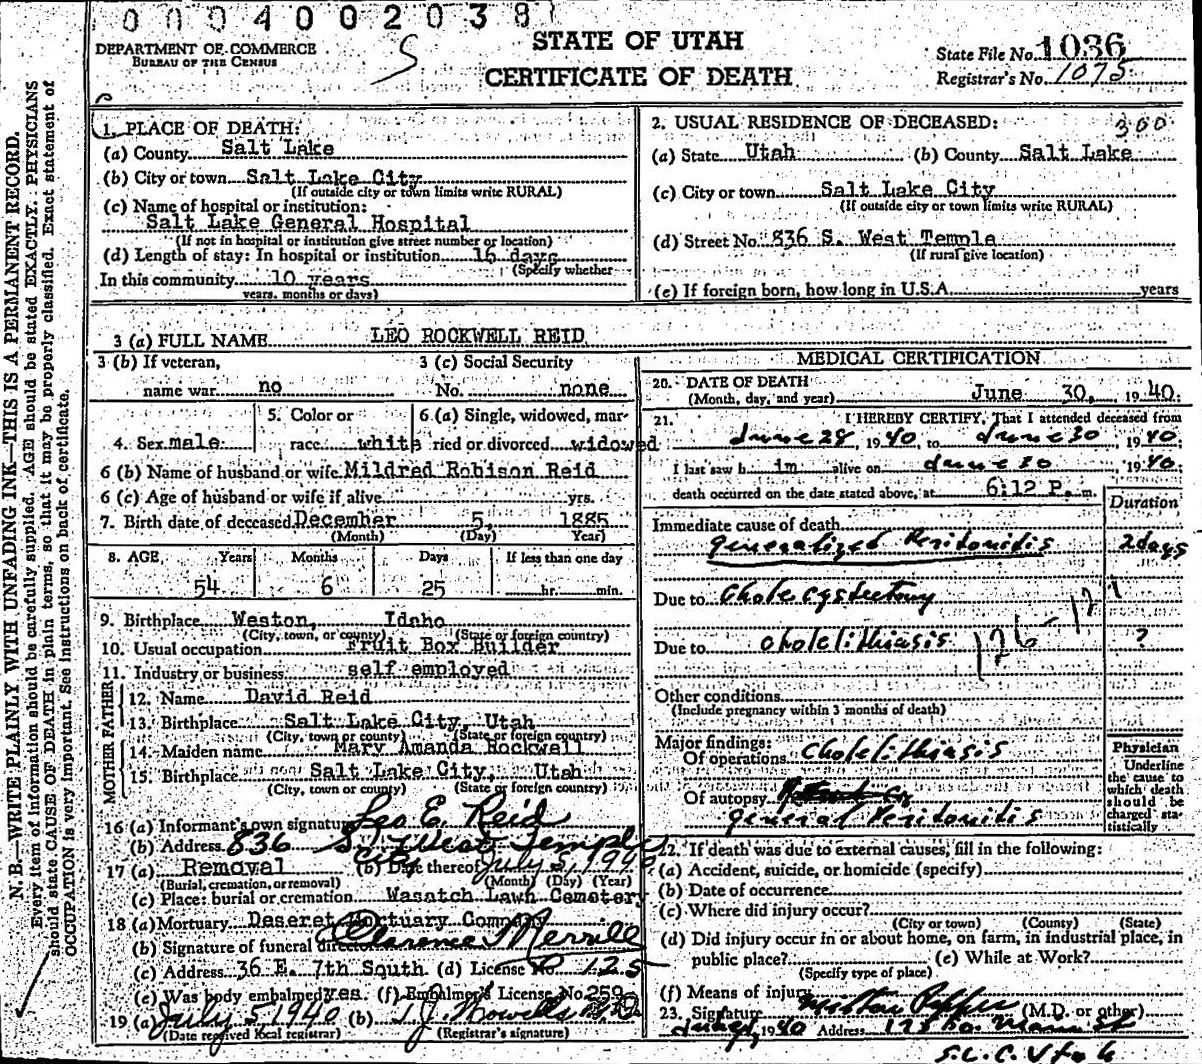 000400203 8
DEPARTMENT OF COMMERCE
BUREAU OF THE CENSUS
S
STATE OF UTAH
CERTIFICATE OF DEATH
State File No. 1036
Registrar's No. 1075
N. B.—WRITE PLAINLY WITH UNFADING INK—THIS IS A PERMANENT RECORD.
Every item of information should be carefully supplied. AGE should be stated EXACTLY. PHYSICIANS
should state CAUSE OF DEATH in plain terms, so that it may be properly classified. Exact statement of
OCCUPATION is very important. See instructions on back of certificate.
1. PLACE OF DEATH:
(a) County Salt Lake
(b) City or town Salt Lake City
(If outside city or town limits write RURAL)
(c) Name of hospital or institution:
Salt Lake General Hospital
(If not in hospital or institution give street number or location)
(d) Length of stay: In hospital or institution 16 days
(Specify whether
In this community 10 years
years, months or days)
2. USUAL RESIDENCE OF DECEASED: 300
(a) State Utah (b) County Salt Lake
(c) City or town Salt Lake City
(If outside city or town limits write RURAL)
(d) Street No. 836 S. West Temple
(If rural give location)
(e) If foreign born, how long in U.S.A. years
3 (a) FULL NAME LEO ROCKWELL REID
3 (b) If veteran, 3 (c) Social Security
name war no No. none
4. Sex male 5. Color or race white 6. (a) Single, widowed, married or divorced widowed
6 (b) Name of husband or wife Mildred Robison Reid
6 (c) Age of husband or wife if alive yrs.
7. Birth date of deceased December 5, 1885
(Month) (Day) Year)
8. AGE Years Months Days If less than one day
54 6 25 hr. min.
9. Birthplace Weston, Idaho
(City, town, or county) (State or foreign country)
10. Usual occupation Fruit Box Builder
11. Industry or business self employed
FATHER
12. Name David Reid
13. Birthplace Salt Lake City, Utah
(City, town or county) (State or foreign country)
MOTHER
14. Maiden name Mary Amanda Rockwell
15. Birthplace Salt Lake City, Utah
(City, town or county) (State or foreign country)
16 (a) Informant's own signature Leo E. Reid
(b) Address 836 So. West Temple
City
17 (a) Removal (b) Date thereof July 5, 1940
(Burial, cremation, or removal) (Month) (Day) (Year)
(c) Place: burial or cremation Wasatch Lawn Cemetery
18 (a) Mortuary Deseret Mortuary Company
(b) Signature of funeral director Clarence Merrill
(c) Address 36 E. 7th South (d) License No. 125
(e) Was body embalmed? yes. (f) Embalmer's License No. 259
19 (a) July 5 1940 (b) T. J. Howells M.D.
(Date received local registrar) (Registrar's signature)
MEDICAL CERTIFICATION
20. DATE OF DEATH June 30, 1940.
(Month, day, and year)
21. I HEREBY CERTIFY, That I attended deceased from
June 28, 1940, to June 30, 1940.
I last saw him alive on June 30, 1940.
death occurred on the date stated above, at 6:12 P. m.
Duration
Immediate cause of death
generalized Peritonitis 2 days
Due to Cholecystectomy
Due to cholelithiasis ?
Other conditions
(Include pregnancy within 3 months of death)
Major findings:
Of operations Cholelithiasis
Of autopsy
general Peritonitis
Physician
Underline
the cause to
which death
should be
charged sta-
tistically
22. If death was due to external causes, fill in the following:
(a) Accident, suicide, or homicide (specify)
(b) Date of occurrence
(c) Where did injury occur?
(City or town) (County) (State)
(d) Did injury occur in or about home, on farm, in industrial place, in
public place? (e) While at Work?
(Specify type of place)
(f) Means of injury
23. Signature (M.D. or other)
1940 Address So. Main St
S.L.C. Utah